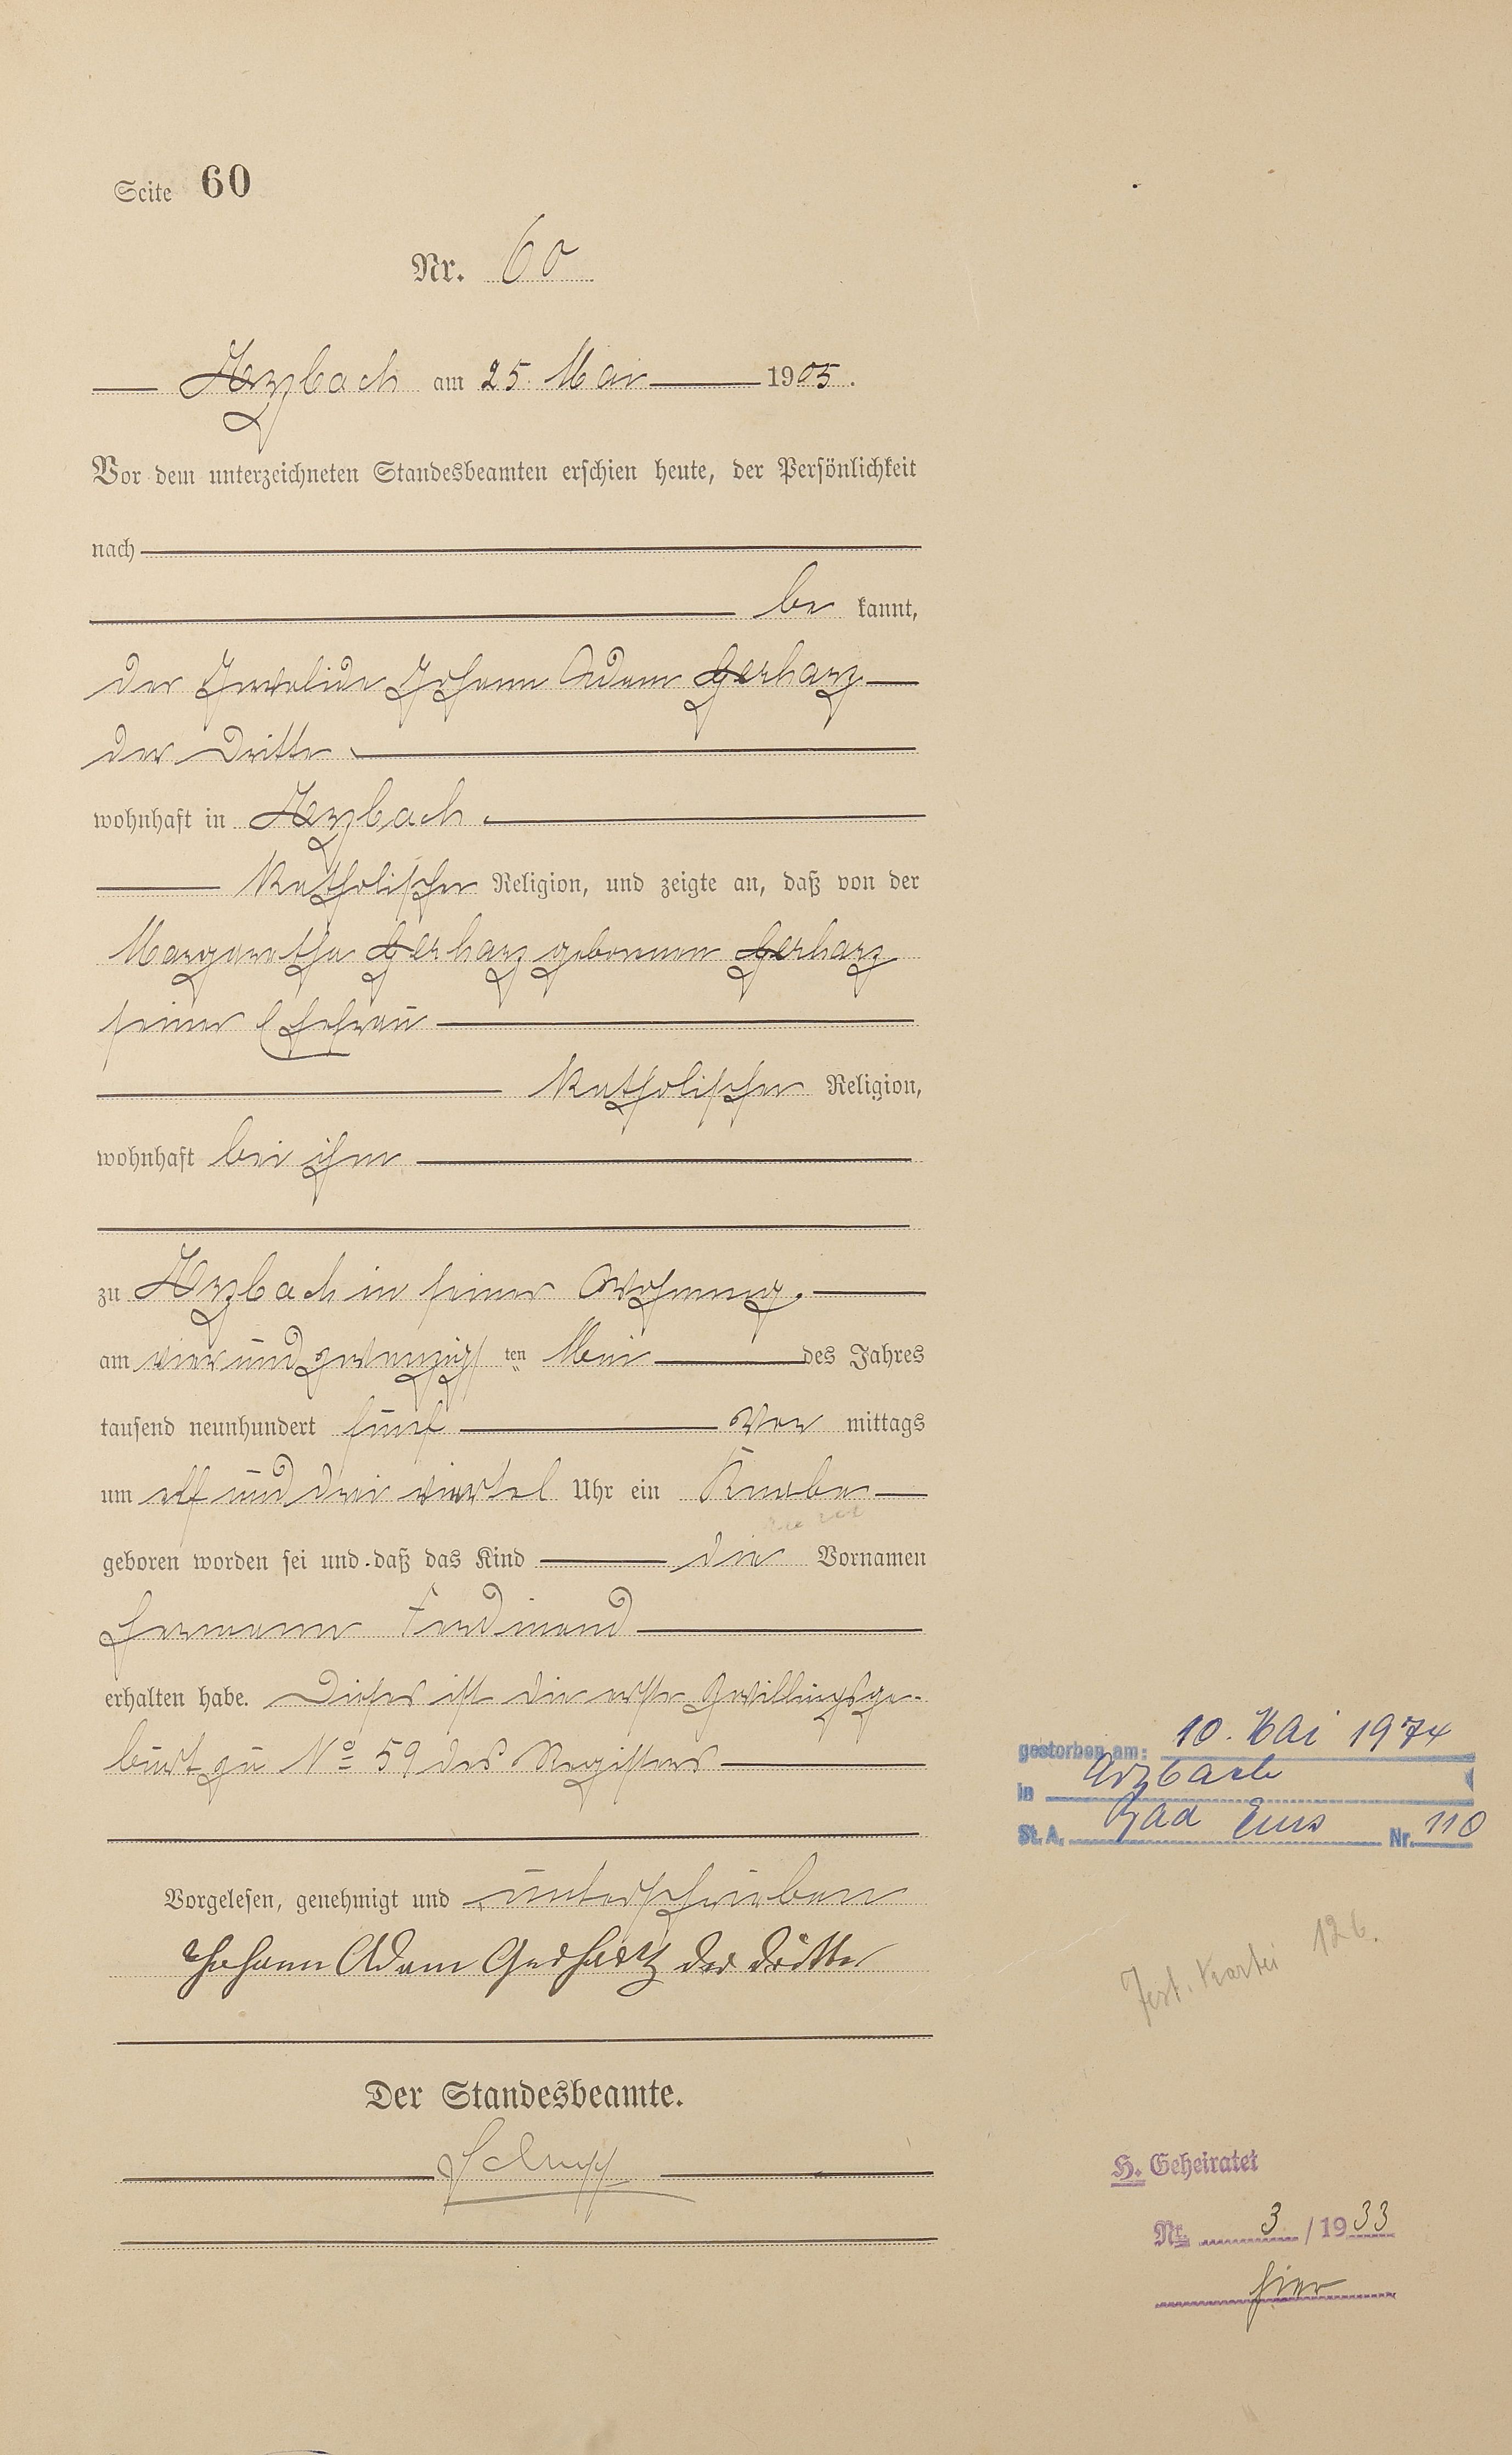 Seite 60
Nr. 60
Arzbach am 25. Mai 1905.
Vor dem unterzeichneten Standesbeamten erschien heute, der Persönlichkeit
nach
be kannt,
der Invalide Johann Adam Gerharz
der Dritte
wohnhaft in Arzbach
katholischer Religion, und zeigte an, daß von der
Margaretha Gerharz geborenen Gerharz
seiner Ehefrau
katholischer Religion,
wohnhaft bei ihm
zu Arzbach in seiner Wohnung
am vier und zwanzigs ten Mai des Jahres
tausend neunhundert fünf Vor mittags
um elf und drei viertel Uhr ein Knabe
geboren worden sei und daß das Kind die Vornamen
Hermann Ferdinand
erhalten habe. Dieses ist die erste Zwillingsge-
burt zu No 59 des Registers
Vorgelesen, genehmigt und unterschrieben
Johann Adam Gerhartz der dritte
Der Standesbeamte.
Schupp
gestorben am: 10. Mai 1974
in Arzbach
St. A. Bad Ems Nr. 110
Kartei 126.
H. Geheiratet
Nr. 3 / 1933
hier